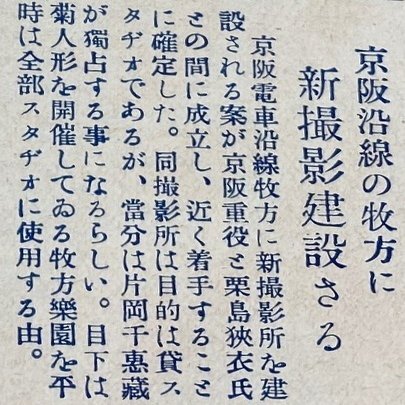 京阪沿線の牧方に
新撮影建設さる
京阪電車沿線牧方に新撮影所を建
設される案が京阪重役と栗島狹衣氏
との間に成立し、近く着手すること
に確定した。同撮影所は目的は貸ス
タヂオであるが、當分は片岡千惠藏
が獨占する事になるらしい。目下は
菊人形を開催してゐる牧方樂園を平
時は全部スタヂオに使用する由。